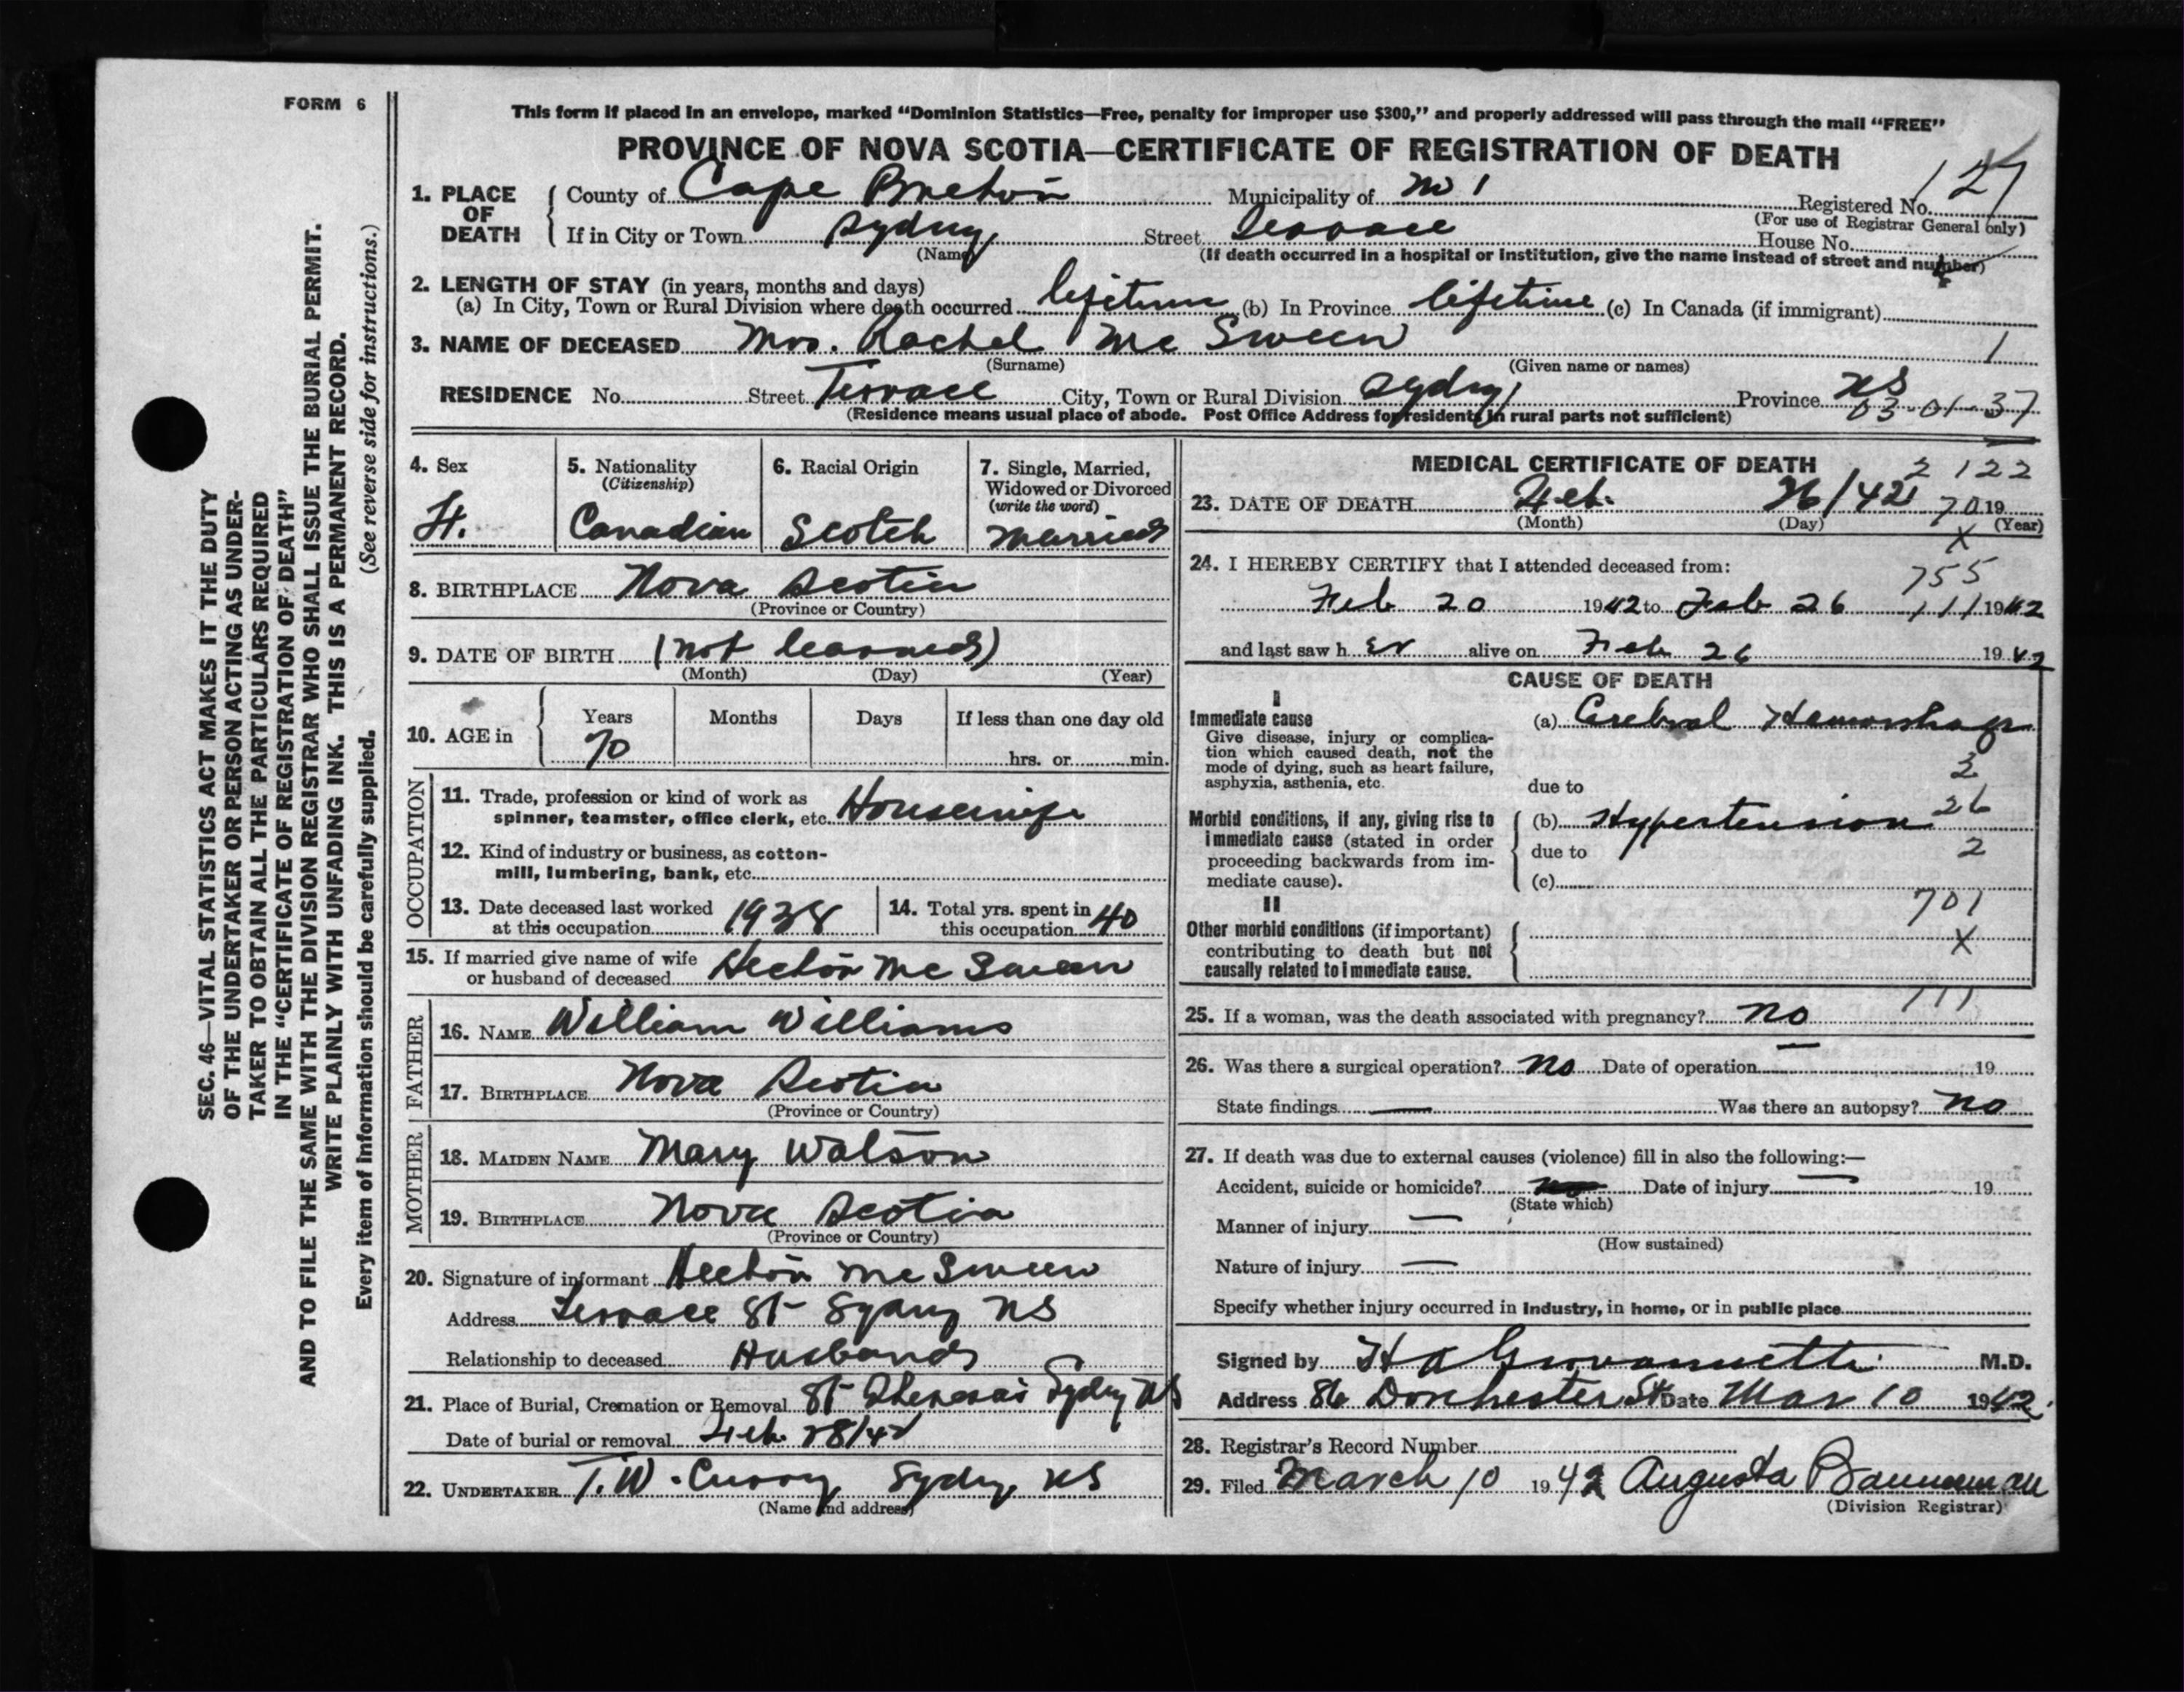 FORM 6
This form if placed in an envelope, marked “Dominion Statistics—Free, penalty for improper use $300,” and properly addressed will pass through the mail “FREE”
PROVINCE OF NOVA SCOTIA—CERTIFICATE OF REGISTRATION OF DEATH
127
1. PLACE OF DEATH County of Cape Breton Municipality of No 1 Registered No.
(For use of Registrar General only)
If in City or Town Sydney Street Terrace House No.
(Name) (If death occurred in a hospital or institution, give the name instead of street and number)
2. LENGTH OF STAY (in years, months and days)
(a) In City, Town or Rural Division where death occurred lifetime (b) In Province lifetime (c) In Canada (if immigrant)
3. NAME OF DECEASED Mrs. Rachel Mc Sween 1
(Surname) (Given name or names)
RESIDENCE No. Street Terrace City, Town or Rural Division Sydney Province NS
03-01-37
(Residence means usual place of abode. Post Office Address for residents in rural parts not sufficient)
4. Sex
F.
5. Nationality
(Citizenship)
Canadian
6. Racial Origin
Scotch
7. Single, Married,
Widowed or Divorced
(write the word)
Married
8. BIRTHPLACE Nova Scotia
(Province or Country)
9. DATE OF BIRTH (not learned)
(Month) (Day) (Year)
10. AGE in Years Months Days If less than one day old
70 hrs. or min.
OCCUPATION
11. Trade, profession or kind of work as
spinner, teamster, office clerk, etc. Housewife
12. Kind of industry or business, as cotton-
mill, lumbering, bank, etc.
13. Date deceased last worked
at this occupation 1938
14. Total yrs. spent in
this occupation 40
15. If married give name of wife
or husband of deceased Hector Mc Sween
FATHER
16. NAME William Williams
17. BIRTHPLACE Nova Scotia
(Province or Country)
MOTHER
18. MAIDEN NAME Mary Watson
19. BIRTHPLACE Nova Scotia
(Province or Country)
20. Signature of informant Hector Mc Sween
Address Terrace St Sydney NS
Relationship to deceased Husband
21. Place of Burial, Cremation or Removal St Theresa's Sydney NS
Date of burial or removal Feb 28/42
22. UNDERTAKER T.W. Curry Sydney NS
(Name and address)
MEDICAL CERTIFICATE OF DEATH
2 122
23. DATE OF DEATH Feb. 26/42 19
70
(Month) (Day) (Year)
X
24. I HEREBY CERTIFY that I attended deceased from:
755
Feb 20 1942 to Feb 26 1942
111
and last saw h er alive on Feb 26 1942
CAUSE OF DEATH
I
Immediate cause
Give disease, injury or complica-
tion which caused death, not the
mode of dying, such as heart failure,
asphyxia, asthenia, etc.
(a) Cerebral Hemorrhage
3
due to
26
Morbid conditions, if any, giving rise to
immediate cause (stated in order
proceeding backwards from im-
mediate cause).
(b) Hypertension
due to
2
(c)
701
II
Other morbid conditions (if important)
contributing to death but not
causally related to immediate cause.
X
111
25. If a woman, was the death associated with pregnancy? No
26. Was there a surgical operation? No Date of operation 19
State findings — Was there an autopsy? No
27. If death was due to external causes (violence) fill in also the following:—
Accident, suicide or homicide? Date of injury — 19
(State which)
Manner of injury —
(How sustained)
Nature of injury —
Specify whether injury occurred in industry, in home, or in public place
Signed by H A Giovannetti M.D.
Address 86 Dorchester St Date Mar 10 1942.
28. Registrar's Record Number
29. Filed March 10 1942 Augusta
(Division Registrar)
SEC. 46—VITAL STATISTICS ACT MAKES IT THE DUTY
OF THE UNDERTAKER OR PERSON ACTING AS UNDER-
TAKER TO OBTAIN ALL THE PARTICULARS REQUIRED
IN THE “CERTIFICATE OF REGISTRATION OF DEATH”
AND TO FILE THE SAME WITH THE DIVISION REGISTRAR WHO SHALL ISSUE THE BURIAL PERMIT.
WRITE PLAINLY WITH UNFADING INK. THIS IS A PERMANENT RECORD.
Every item of information should be carefully supplied. (See reverse side for instructions.)